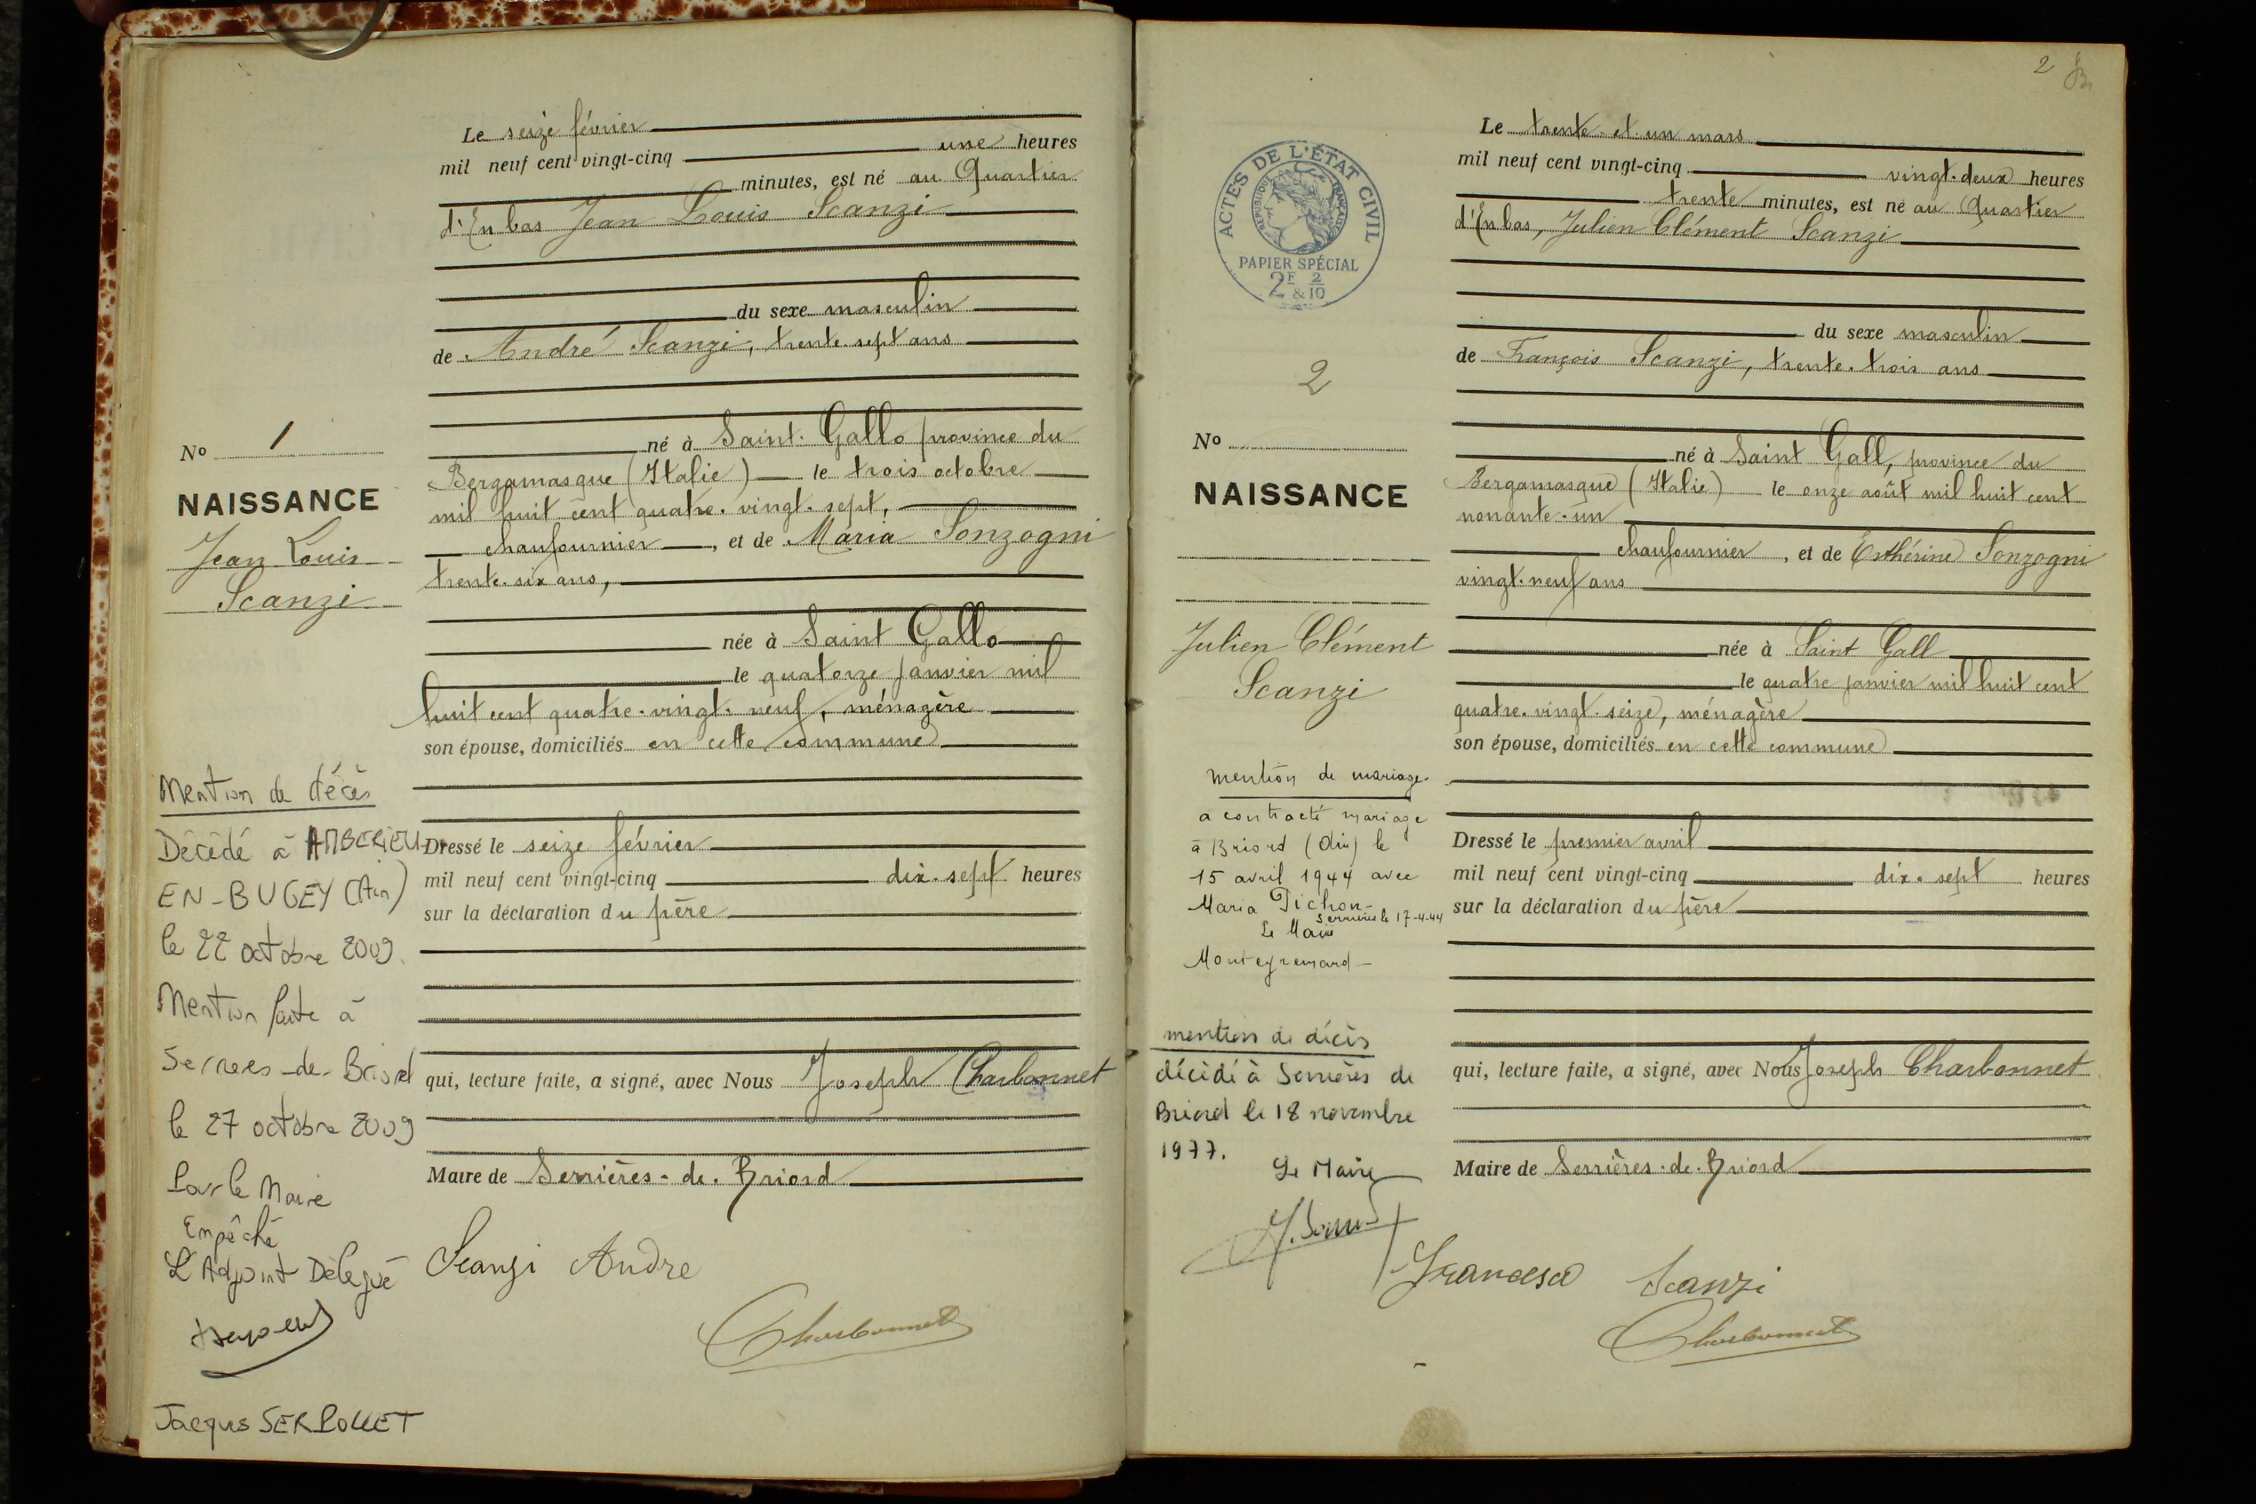 Le seize février
mil neuf cent vingt-cinq une heures
minutes, est né au Quartier
d'En bas Jean Louis Scanzi
du sexe masculin
de André Scanzi, trente-sept ans
né à Saint-Gallo province du
Bergamasque (Italie) le trois octobre
mil huit cent quatre-vingt-sept,
chaufournier, et de Maria Sonzogni
trente-six ans,
née à Saint Gallo
le quatorze janvier mil
huit cent quatre-vingt-neuf, ménagère
son épouse, domiciliés en cette commune
Dressé le seize février
mil neuf cent vingt-cinq dix-sept heures
sur la déclaration du père
qui, lecture faite, a signé, avec Nous Joseph Charbonnet
Maire de Serrières-de-Briord
Scanzi Andre
Charbonnet
No 1
NAISSANCE
Jean Louis
Scanzi
Mention de décès
Décédé à AMBERIEU
EN-BUGEY (Ain)
le 22 octobre 2009.
Mention faite à
Serrières-de-Briord
le 27 octobre 2009
Pour le Maire
Empêché
L'Adjoint Délégué
Jacques SERPOLLET
2
ACTES DE L'ÉTAT CIVIL
RÉPUBLIQUE FRANÇAISE
PAPIER SPÉCIAL
2F & 2/10
2
No
NAISSANCE
Julien Clément
Scanzi
mention de mariage
a contracté mariage
à Briord (Ain) le
15 avril 1944 avec
Maria Pichon-
Serrières le 17-4-44
Le Maire
mention de décès
décédé à Serrières de
Briord le 18 novembre
1977.
Le Maire
Le trente-et-un mars
mil neuf cent vingt-cinq vingt-deux heures
trente minutes, est né au Quartier
d'En bas, Julien Clément Scanzi
du sexe masculin
de François Scanzi, trente-trois ans
né à Saint Gall, province du
Bergamasque (Italie) le onze août mil huit cent
nonante-un
chaufournier, et de Esthérine Sonzogni
vingt-neuf ans
née à Saint Gall
le quatre janvier mil huit cent
quatre-vingt-seize, ménagère
son épouse, domiciliés en cette commune
Dressé le premier avril
mil neuf cent vingt-cinq dix-sept heures
sur la déclaration du père
qui, lecture faite, a signé, avec Nous Joseph Charbonnet
Maire de Serrières-de-Briord
Francesco Scanzi
Charbonnet